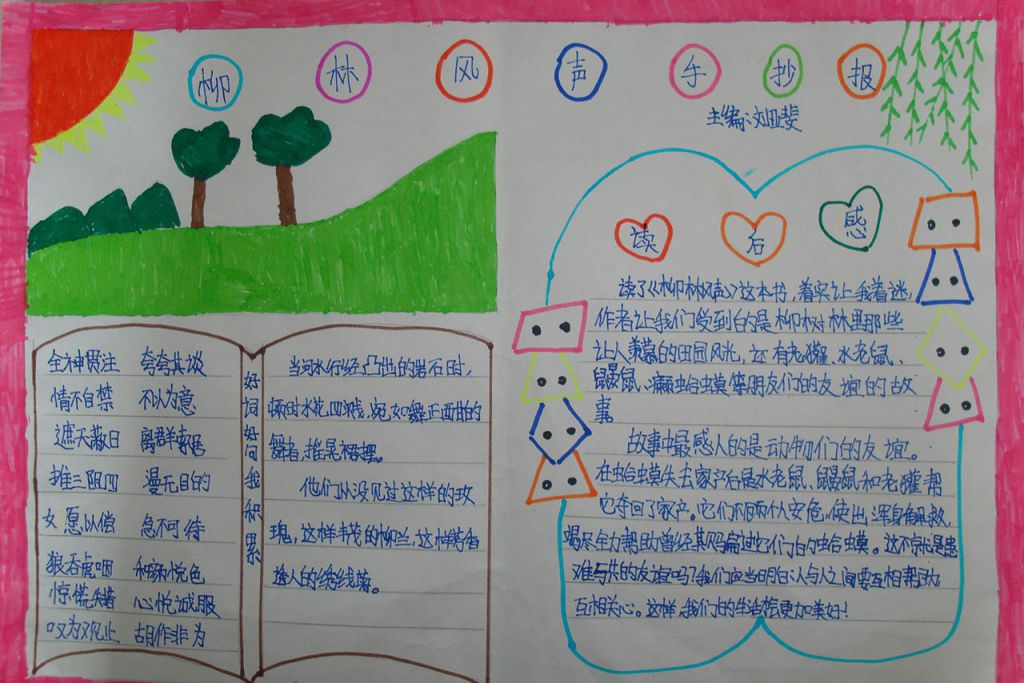 柳林风声手抄报
主编:刘亚斐
全神贯注 夸夸其谈
情不自禁 不以为意
遮天蔽日 离群索居
推三阻四 漫无目的
如愿以偿 急不可待
狼吞虎咽 和颜悦色
惊慌失措 心悦诚服
叹为观止 胡作非为
好词好句我积累
当河水行经凸出的岩石时,
顿时水花四溅,宛如舞正西曲的
舞者,摇晃裙摆。
他们从没见过这样的玫
瑰,这样茂的柳兰,这样芳香
迷人的绣线菊。
读后感
读了《柳林风声》这本书,着实让我着迷,
作者让我们感受到的是柳树林里那些
让人羡慕的田园风光,还有老獾、水老鼠、
鼹鼠、癞蛤蟆等朋友们的友谊的故
事。
故事中最感人的是动物们的友谊。
在蛤蟆失去家产后是水老鼠、鼹鼠和老獾帮
它夺回了家产。它们不顾个人安危,使出浑身解数,
竭尽全力帮助曾经欺骗过它们的蛤蟆。这不就是患
难与共的友谊吗?我们应当明白:人与人之间要互相帮助
互相关心。这样,我们的生活会更加美好!